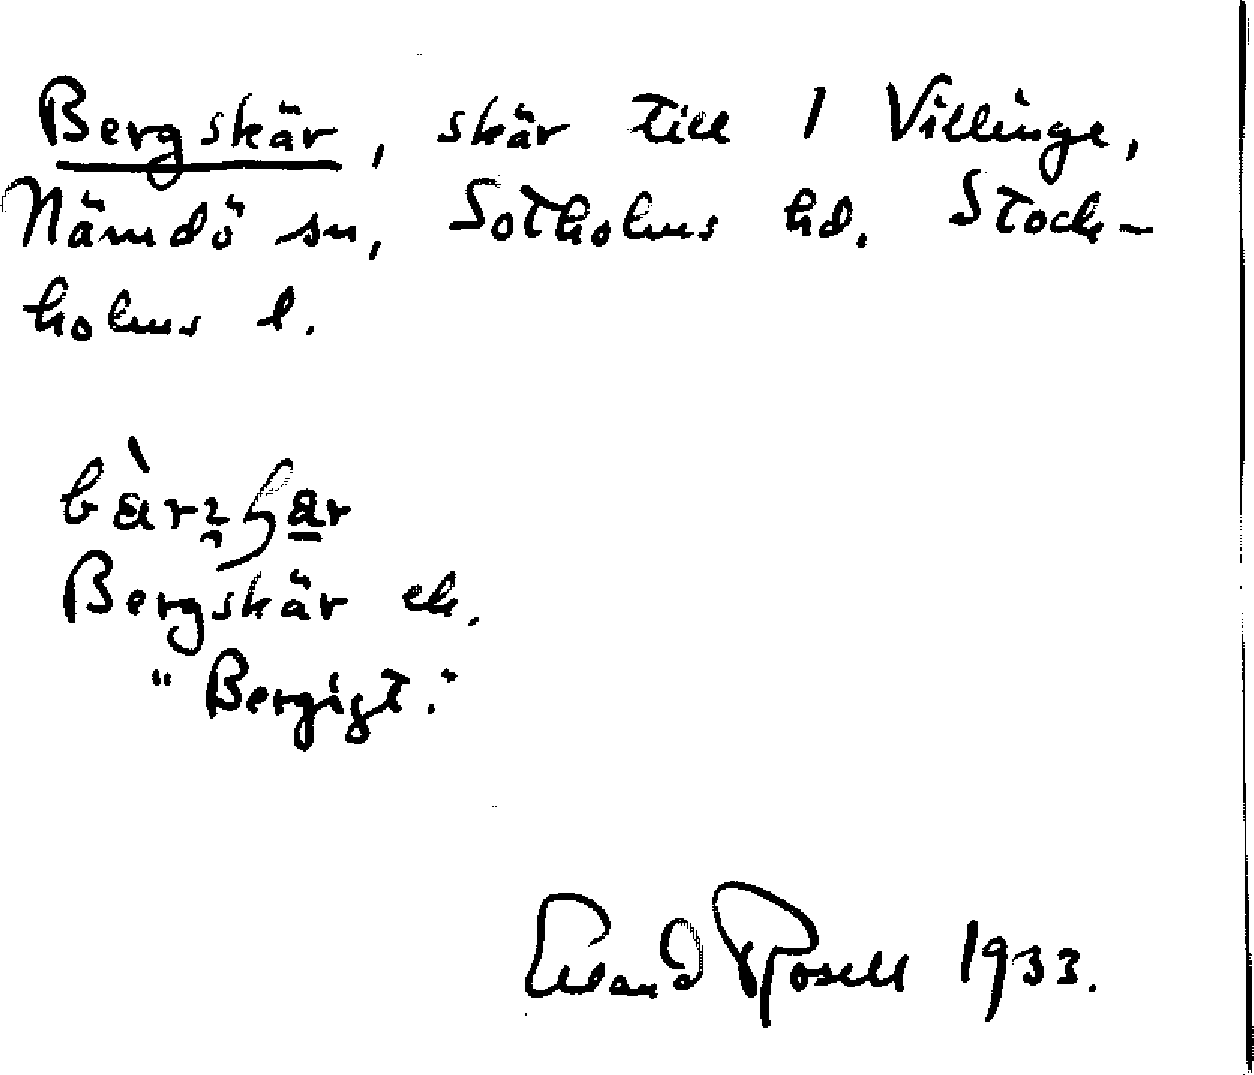 Bergskär, skär till 1 Villinge,
Nämdö sn, Sotholms hd. Stock-
holms l.
Bergskär ek.
"Bergigt."
Erland Rosell 1933.